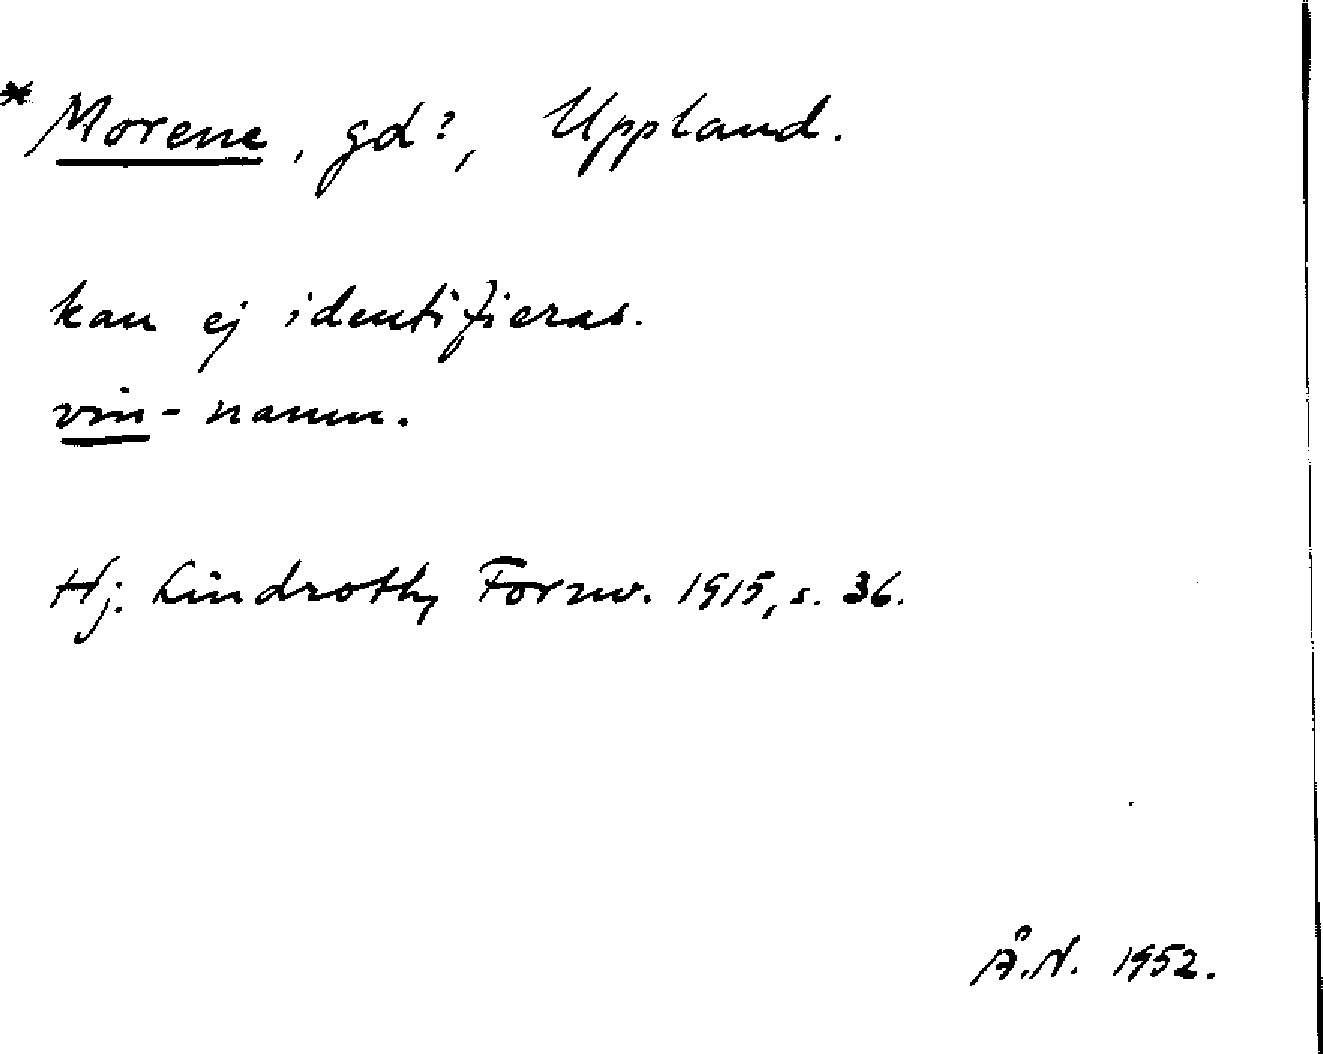 * Morene, gd?, Uppland.
kan ej identifieras.
vin-namn.
Hj. Lindroth, Fornv. 1915, s. 36.
Å.N. 1952.